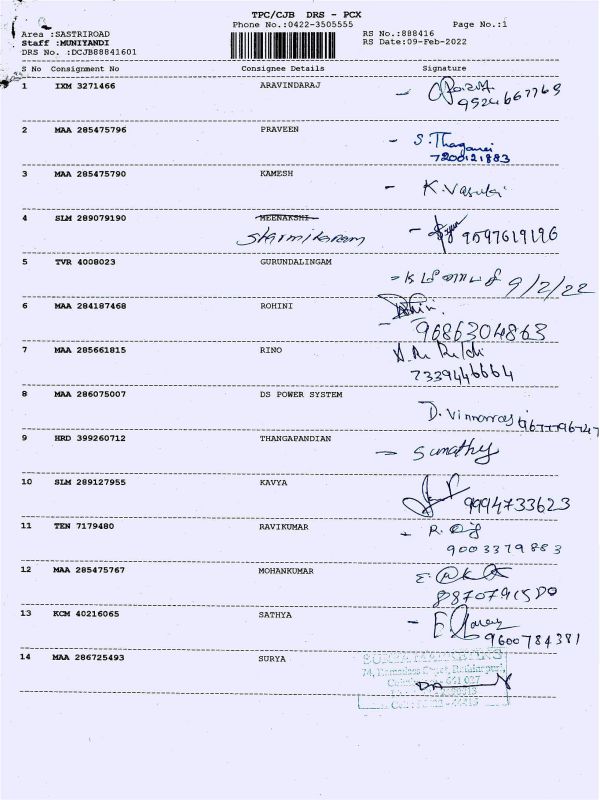 TPC/CJB DRS - PCX
Phone No.:0422-3505555 Page No.:1
Area :SASTRIROAD RS No.:888416
Staff :MUNIYANDI RS Date:09-Feb-2022
DRS No. :DCJB88841601
S No Consignment No Consignee Details Signature
1 IXM 3271466 ARAVINDARAJ
9524667769
2 MAA 285475796 PRAVEEN
7200121883
3 MAA 285475790 KAMESH
K. Vasuki
4 SLM 289079190 MEENAKSHI
9597619196
5 TVR 4008023 GURUNDALINGAM
9/2/22
6 MAA 284187468 ROHINI
9686304863
7 MAA 285661815 RINO
7339446664
8 MAA 286075007 DS POWER SYSTEM
9 HRD 399260712 THANGAPANDIAN
Sumathy
10 SLM 289127955 KAVYA
9994733623
11 TEN 7179480 RAVIKUMAR
9003379883
12 MAA 285475767 MOHANKUMAR
13 KCM 40216065 SATHYA
9600784381
14 MAA 286725493 SURYA